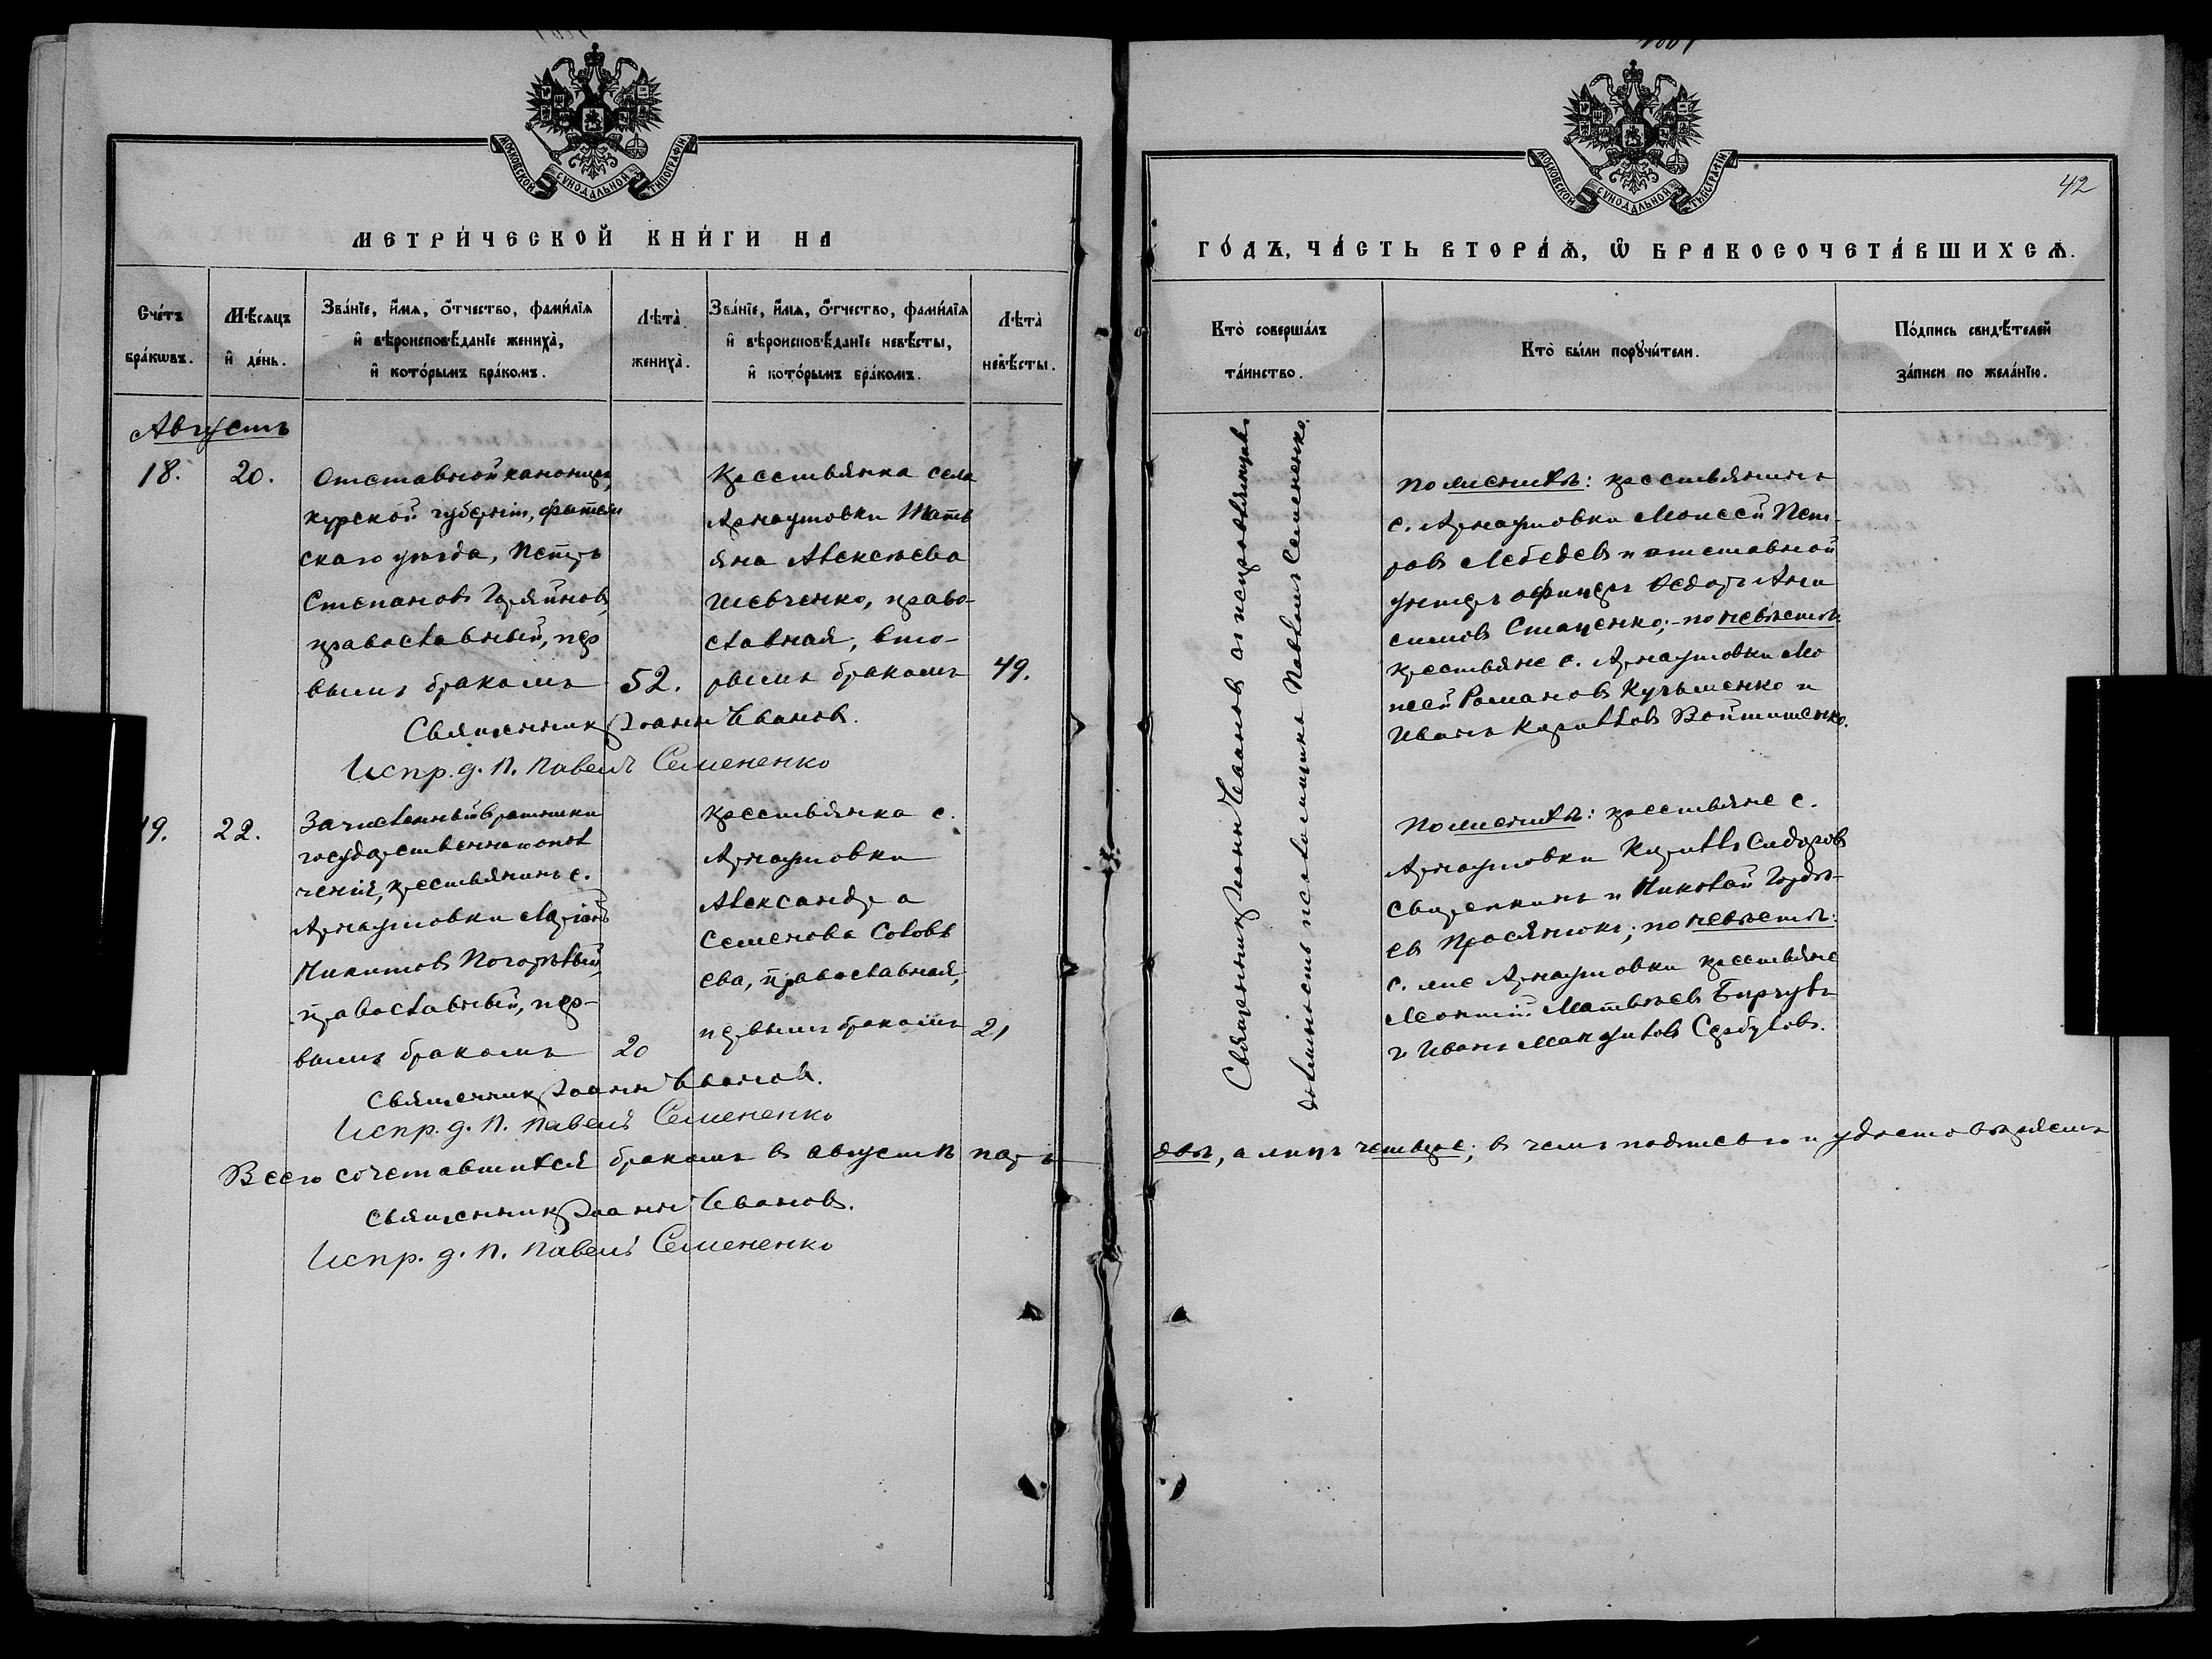 МОСКОВСКОЙ СУНОДАЛЬНОЙ ТИПОГРАФІИ
МЕТРИ́ЧЕСКОЙ КНИ́ГИ НА
Сче́тъ бра́кѡвъ.
Мѣ́сяцъ и҆ де́нь.
Зва́нїе, и҆́мѧ, ѻ҆́тчество, фами́лїѧ
и҆ вѣроисповѣ́данїе жениха̀,
и҆ кото́рымъ бра́комъ.
Лѣта̀ жениха̀.
Зва́нїе, и҆́мѧ, ѻ҆́тчество, фами́лїѧ
и҆ вѣроисповѣ́данїе невѣ́сты,
и҆ кото́рымъ бра́комъ.
Лѣта̀ невѣ́сты.
Августъ
18.
20.
Отставной канониръ,
Курской губерніи, Фатеж
скаго уѣзда, Петръ
Степановъ Горяйновъ,
православный, пер
вымъ бракомъ
52.
Крестьянка села
Арнаутовки Тать
яна Алексѣева
Шевченко, право-
славная, вто-
рымъ бракомъ
49.
Священникъ Іоаннъ Ивановъ.
Испр. д. П. Павелъ Семененко
19.
22.
Зачисленный в ратники
государственнаго опол
ченія, крестьянинъ с.
Арнаутовки
Никитовъ Погорѣлый,
православный, пер-
вымъ бракомъ
20
Крестьянка с.
Арнаутовки
Александра
Семенова Соловь
ева, православная,
первымъ бракомъ
21
Священникъ Іоаннъ Ивановъ.
Испр. д. П. Павелъ Семененко
Всего сочетавшихся бракомъ в августѣ паръ
Священникъ Іоаннъ Ивановъ.
Испр. д. П. Павелъ Семененко
МОСКОВСКОЙ СУНОДАЛЬНОЙ ТИПОГРАФІИ
42
ГО́ДЪ, ЧА́СТЬ ВТОРА́Ѧ, Ѽ БРАКОСОЧЕТА́ВШИХСѦ.
Кто̀ соверша́лъ
та́инство.
Кто̀ бы́ли порꙋчи́тели.
По́дпись свидѣ́телей
за́писи по жела́нїю.
Священникъ Іоаннъ Ивановъ съ исправляющимъ
должность псаломщика Павломъ Семененко.
По женихѣ: крестьянинъ
с. Арнаутовки Моисей Пет-
ровъ Лебедевъ и отставной
унтеръ офицеръ Ѳедоръ Ани
симовъ Стаценко; - по невѣстѣ:
крестьяне с. Арнаутовки Мо
исей Романовъ Кузьменко и
Иванъ Кирилловъ Войтишенко.
По женихѣ: крестьяне с.
Арнаутовки Кириллъ Сидоровъ
Свиренкинъ и Николай Гордѣ-
евъ Просянокъ; по невѣстѣ:
с. же Арнаутовки крестьяне
Леонтій Матвѣевъ
и Иванъ Сербуловъ.
двѣ, а лицъ четверо; в чемъ подписью и удостовѣряемъ